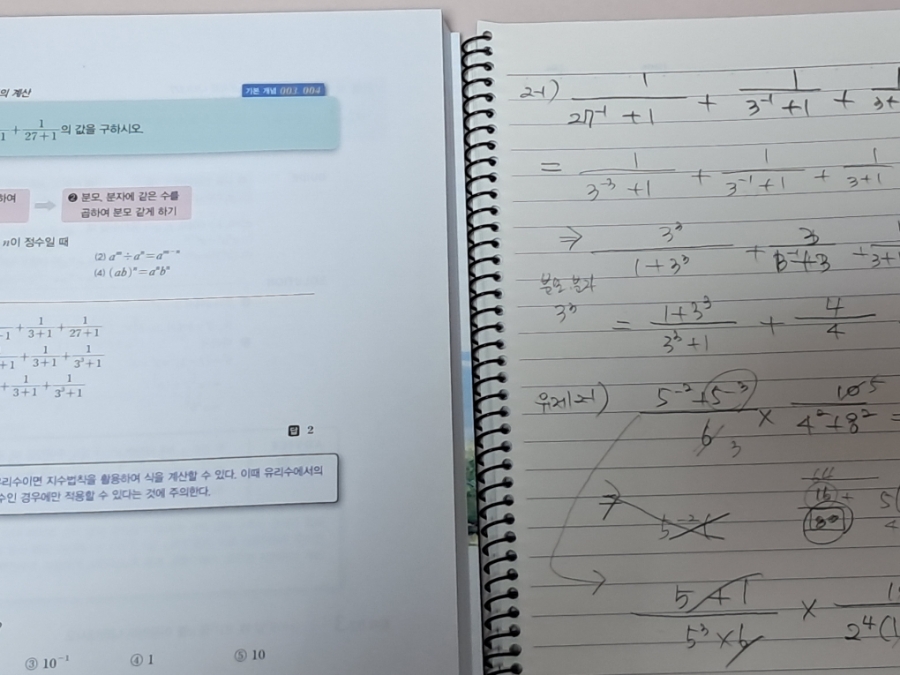 의 계산
기본 개념 003, 004
1 + 1/(27+1) 의 값을 구하시오.
하여
❷ 분모, 분자에 같은 수를
곱하여 분모 같게 하기
n이 정수일 때
(2) aᵐ÷aⁿ=aᵐ⁻ⁿ
(4) (ab)ⁿ=aⁿbⁿ
-1 + 1/(3+1) + 1/(27+1)
+1 + 1/(3+1) + 1/(3³+1)
+ 1/(3+1) + 1/(3³+1)
답 2
유리수이면 지수법칙을 활용하여 식을 계산할 수 있다. 이때 유리수에서의
수인 경우에만 적용할 수 있다는 것에 주의한다.
③ 10⁻¹ ④ 1 ⑤ 10
2-1) 1/(27⁻¹+1) + 1/(3⁻¹+1) + 1/(3+
= 1/(3⁻³+1) + 1/(3⁻¹+1) + 1/(3+1)
⇒ 3³/(1+3³)
분모, 분자
3³ = (1+3³)/(3³+1) + 4/4
유제2-1) (5⁻²+5⁻³)/6 × 10/(4²+8²) =
(5+1)/(5³×6) ×